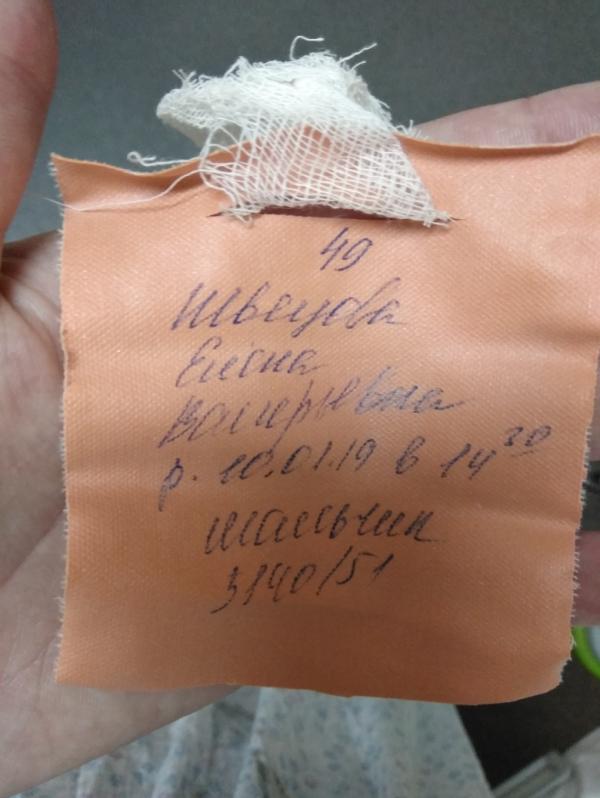 49
Швецова
Елена
Валерьевна
р. 10.01.19 в 14 20
мальчик
3140/51